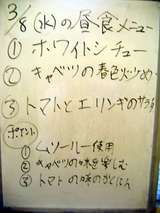 3/8(水)の昼食メニュー
① ホワイトシチュー
② キャベツの春色炒め
③ トマトとエリンギのサラダ
ポイント
① ムソールー使用
② キャベツの味を楽しむ
③ トマトの味の